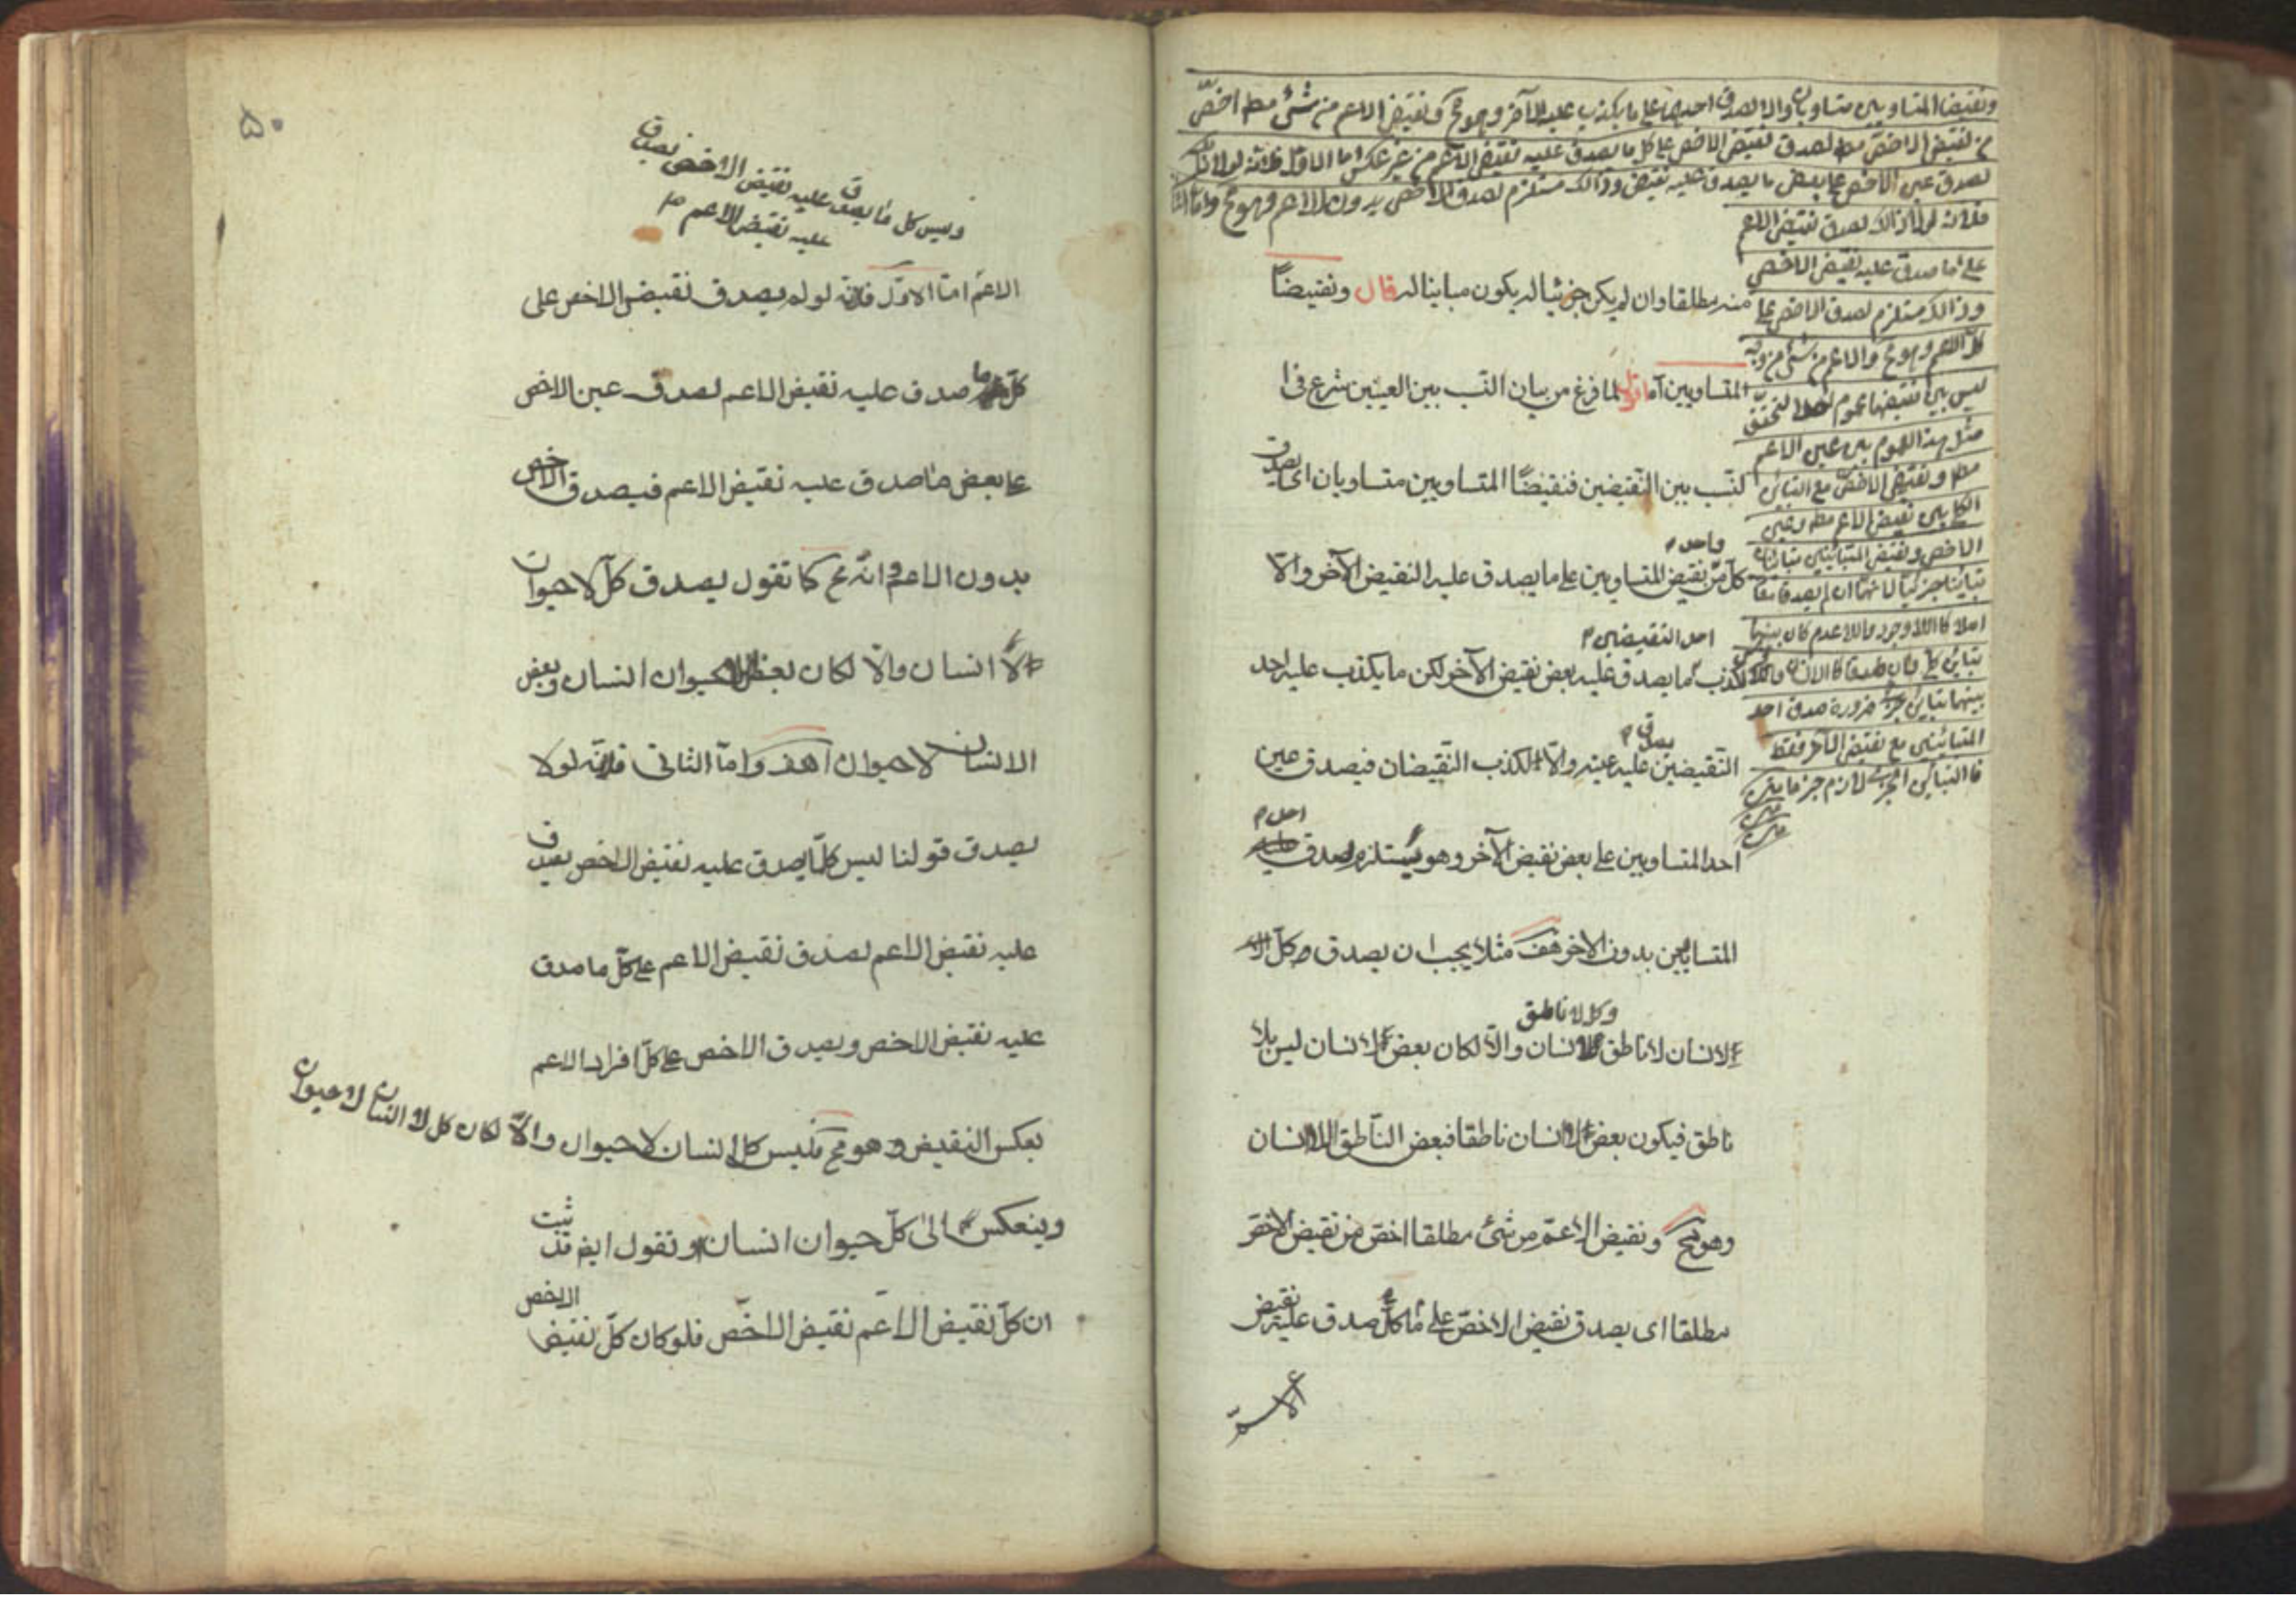 ونقيضا المتساويين متساويان والا لصدق احدهما على ما يكذب عليه الآخر وهو مح ونقيض الاعم من شئ مط اخص
من نقيض الاخص مط لصدق نقيض الاخص على كل ما يصدق عليه نقيض الاعم من غير عكس اما الاول فلانه لولا ذلك
لصدق عين الاخص على بعض ما يصدق عليه نقيض وذالك مستلزم لصدق الاخص بدون الاعم وهو مح واما الثا
فلانه لولا ذالك لصدق نقيض الاعم
على ما صدق عليه نقيض الاخص
وذالك مستلزم لصدق الاخص على
كل الاعم وهو مح والاعم من شئ من وجه
ليس بين نقيضيهما عموم لتحقق
مثل هذا العموم بين عين الاعم
مط ونقيض الاخص مع التباين
الكلي بين نقيض الاعم مط وعين
الاخص ونقيض المتباينين متباينان
تباينا جزئيا لانهما ان لم يصدقا معا
اصلا كاللاوجود واللاعدم كان بينهما
تباين كلي وان صدقا كاللاانسان
بينهما تباين جزئي ضرورة صدق احد
المتباينين مع نقيض الآخر فقط
فالتباين الجزئي لازم جزما
منه مطلقا وان لم يكن جزئيا له يكون مباينا له قال ونقيضا
المتساويين آه اقول لما فرغ من بيان النسب بين العينين شرع في ا
لنسب بين النقيضين فنقيضا المتساويين متساويان اى يصدق
واحد
كل من نقيض المتساويين على ما يصدق عليه النقيض الآخر والا
احد النقيضين
لكذب ما يصدق عليه بعض نقيض الآخر لكن ما يكذب عليه احد
يصدق
النقيضين عليه عينه والا لكذب النقيضان فيصدق عين
احد
احد المتساويين على بعض نقيض الآخر وهو يستلزم لصدق
المتساويين بدون الاخر هف مثلا يجب ان يصدق كل
وكل لا ناطق
لا انسان لا ناطق لا انسان والا لكان بعض لا انسان ليس بلا
ناطق فيكون بعض اللاانسان ناطقا فبعض الناطق لا انسان
وهو مح ونقيض الاعم من شئ مطلقا اخص من نقيض الاخص
مطلقا اى يصدق نقيض الاخص على كل ما صدق عليه نقيض
الاعم
۵۰
وليس كل ما يصدق عليه نقيض الاخص يصدق
عليه نقيض الاعم
الاعم اما الاول فلانه لو لم يصدق نقيض الاخص على
كل ما صدق عليه نقيض الاعم لصدق عين الاخص
على بعض ما صدق عليه نقيض الاعم فيصدق الاخص
بدون الاعم وانه مح كما تقول يصدق كل لا حيوان
لا انسان والا لكان بعض اللاحيوان انسان وبعض
الانسان لا حيوان هف واما الثانى فلانه لولا
يصدق قولنا ليس كل ما يصدق عليه نقيض الاخص يصدق
عليه نقيض الاعم لصدق نقيض الاعم على كل ما صدق
عليه نقيض الاخص ويصدق الاخص على كل افراد الاعم
بعكس النقيض وهو مح فليس كل لا انسان لا حيوان والا لكان كل لا انسان لا حيوان
وينعكس الى كل حيوان انسان او تقول ايض قد ثبت
ان كل نقيض الاعم نقيض الاخص فلو كان كل نقيض الاخص